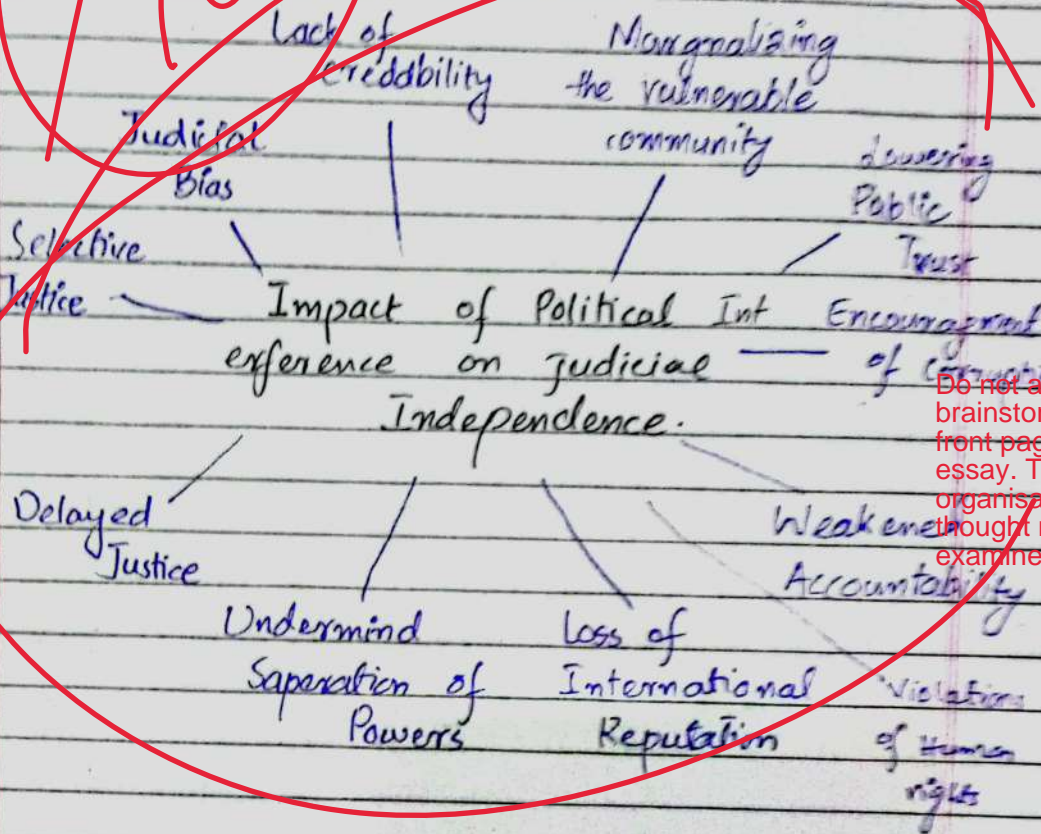 Lack of
creddbility
Marginalising
the vulnerable
community
Judicial
Bias
Lowering
Public
Trust
Selective
Justice
Impact of Political Int
erference on judicial
Independence.
Encouragment
of
Do not a
brainstor
front pag
essay. T
organisa
thought
examine
Delayed
Justice
Weakened
Accountability
Undermind
Saperation of
Powers
Loss of
International
Reputation
Violations
of Human
rights